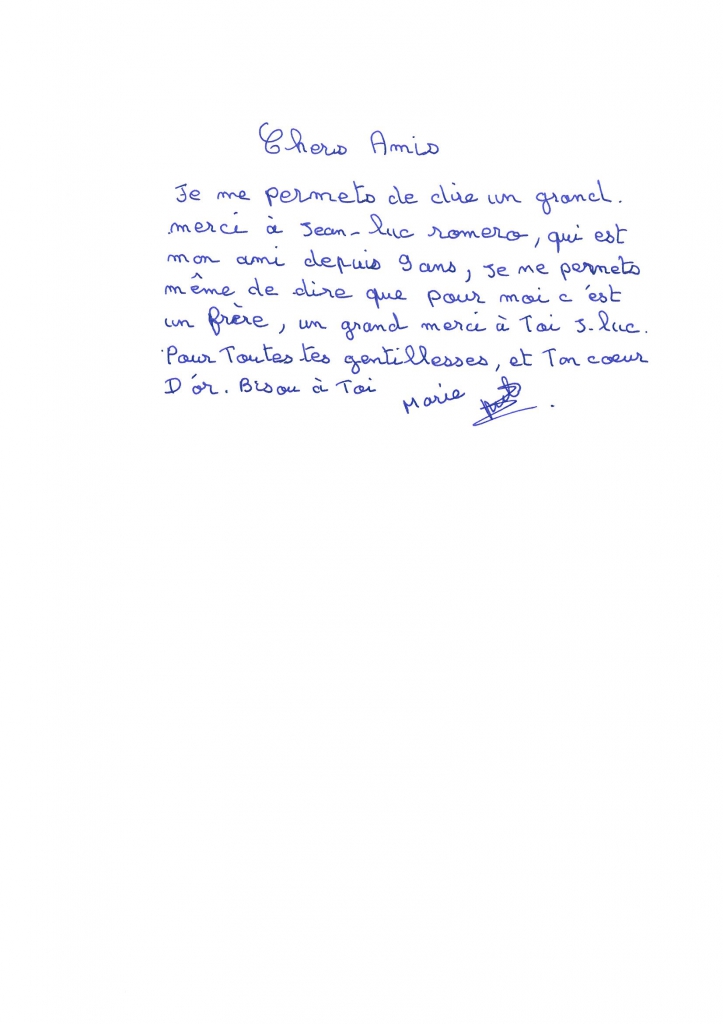 Chers Amis
Je me permets de dire un grand.
merci à Jean-luc romero, qui est
mon ami depuis 9 ans, je me permets
même de dire que pour moi c'est
un frère, un grand merci à Toi J-luc.
Pour Toutes tes gentillesses, et Ton coeur
D'or. Bisou à Toi Marie